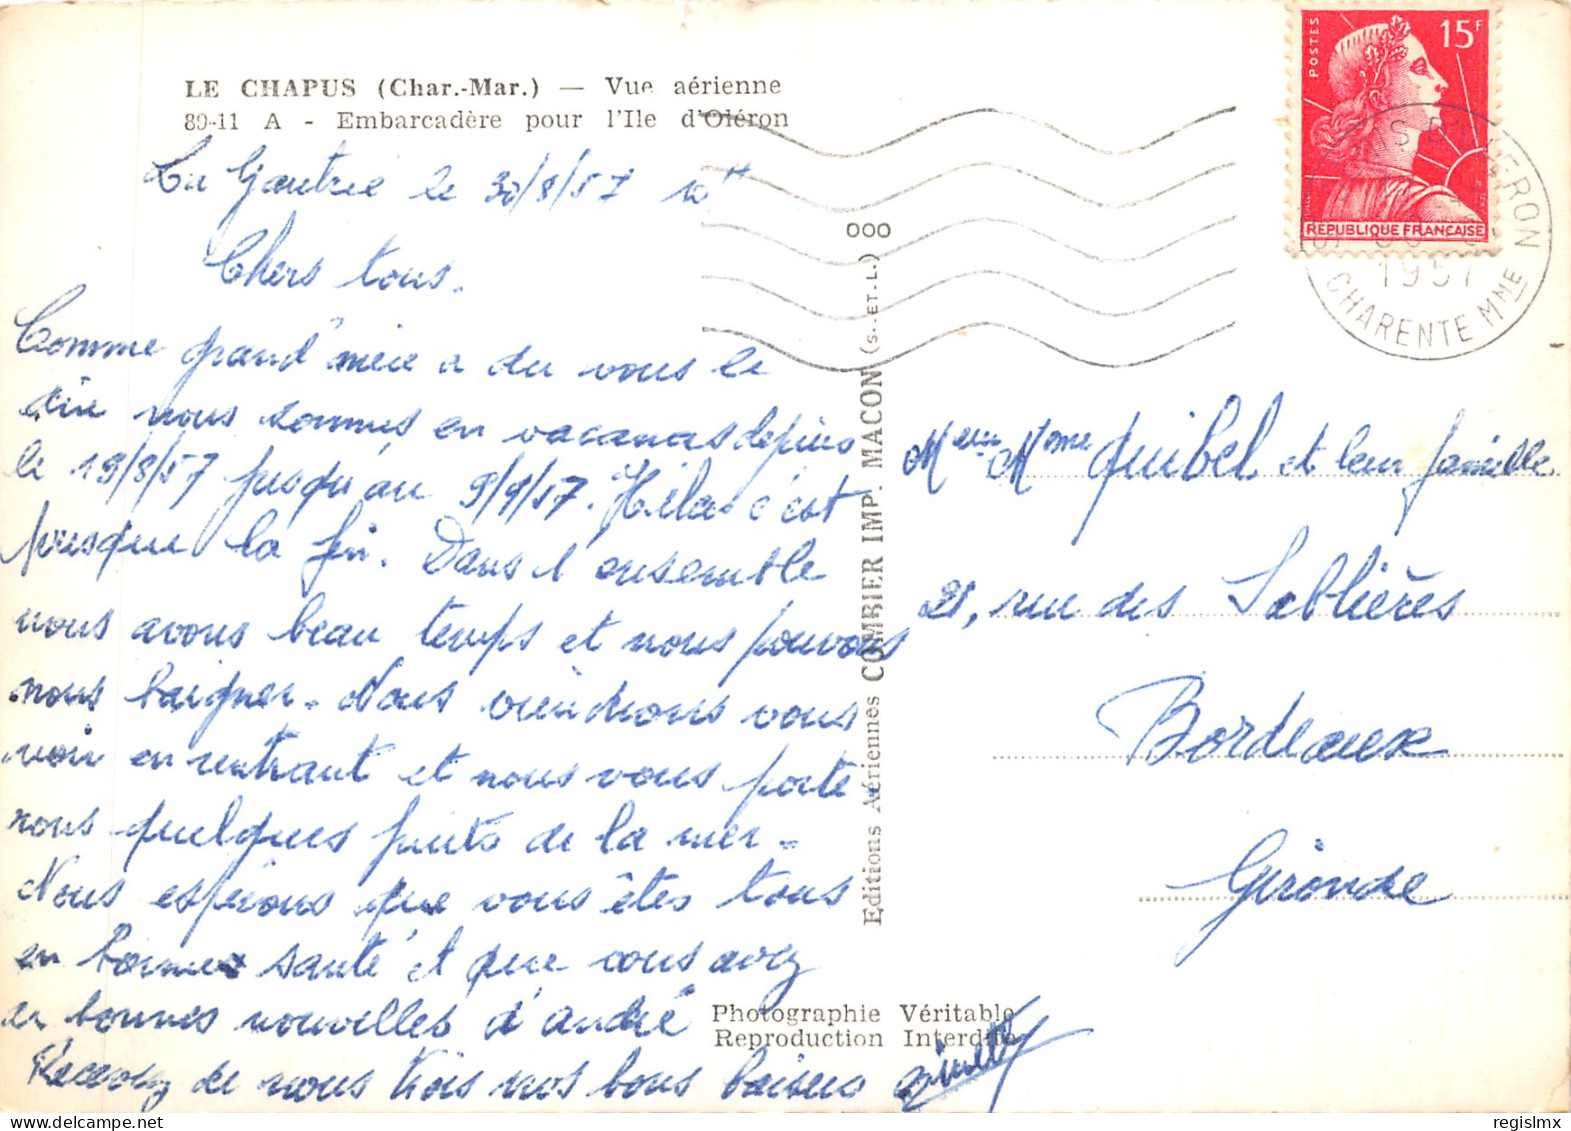 LE CHAPUS (Char.-Mar.) — Vue aérienne
89-11 A - Embarcadère pour l'Ile d'Oléron
La Gautrie le 30/8/57 10H
Chers tous.
Comme grand'mère a du vous le
dire nous sommes en vacances depuis
le 19/8/57 jusqu'au 9/9/57. Hélas c'est
presque la fin. Dans l'ensemble
nous avons beau temps et nous pouvons
nous baigner. Nous viendrons vous
voir en rentrant et nous vous porte
rons quelques fruits de la mer.
Nous espérons que vous êtes tous
en bonne santé et que vous avez
de bonnes nouvelles d'andré
Recevez de nous trois nos bons baisers
000
Editions Aériennes COMBIER IMP. MACON (S.-ET-L.)
Photographie Véritable
Reproduction Interdite
POSTES
15F
REPUBLIQUE FRANÇAISE
OLERON
1957
CHARENTE MME
Quibel et leur famille
21, rue des Sablières
Bordeaux
Gironde
regislmx